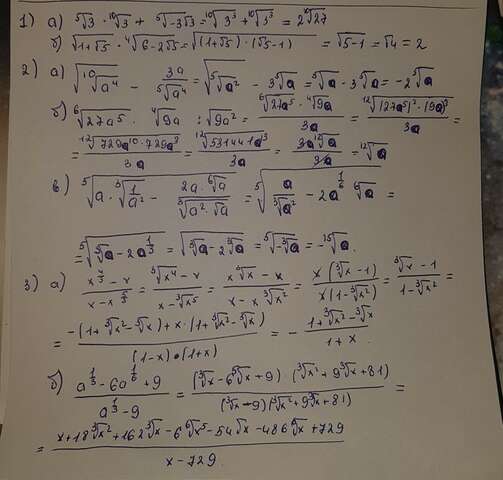 1) а) ⁵√3 · ¹⁰√3 + ⁵√-3√3 = ¹⁰√3³ + ¹⁰√3³ = 2¹⁰√27
б) √1+√5 · ⁴√6-2√5 = √(1+√5) · (√5-1) = √5-1 = √4 = 2
2) а) √¹⁰√a⁴ - 3a/⁵√a⁴ = √⁵√a² - 3⁵√a = ⁵√a - 3⁵√a = -2⁵√a
б) ⁶√27a⁵ · ⁴√9a : √9a² = ⁶√27a⁵ · ⁴√9a / 3a = ¹²√(27a⁵)² · (9a)³ / 3a =
= ¹²√729a¹⁰ · 729a³ / 3a = ¹²√531441a¹³ / 3a = 3a¹²√a / 3a = ¹²√a
в) ⁵√a · ³√1/a² - 2a · ⁶√a / ³√a² · √a = ⁵√a/³√a² - 2a^1/6 ⁶√a =
= ⁵√³√a - 2a^1/3 = ⁵√³√a - 2³√a = ⁵√-³√a = -¹⁵√a.
3) а) x^4/3 - x / x - x^5/3 = ³√x⁴ - x / x - ³√x⁵ = x³√x - x / x - x³√x² = x(³√x - 1) / x(1 - ³√x²) = ³√x - 1 / 1 - ³√x² =
= -(1 + ³√x² - ³√x) + x · (1 + ³√x² - ³√x) / (1-x) · (1+x) = - 1 + ³√x² - ³√x / 1 + x.
б) a^1/3 - 6a^1/6 + 9 / a^1/3 - 9 = (³√x - 6⁶√x + 9) · (³√x² + 9³√x + 81) / (³√x - 9)(³√x² + 9³√x + 81) =
= x + 18³√x² + 162³√x - 6⁶√x⁵ - 54√x - 486⁶√x + 729 / x - 729.